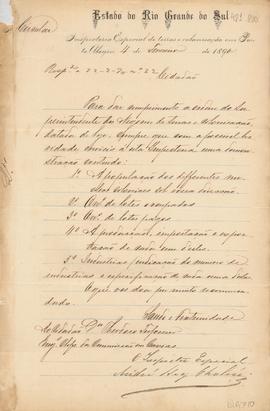 Estado do Rio Grande do Sul
Inspectoria Especial de terras e colonisação em Por-
to Alegre 4 de de 1890
Circular
Cidadão
Para dar cumprimento a ordem do Su-
perintendente do Serviço de Terras e Colonisação,
datada de hoje, cumpre que com a possivel bre-
vidade envieis a esta Inspectoria uma demons-
tração contendo:
1º A população dos differentes nu-
cleos coloniaes sob vossa direcção.
2º Nº de lotes occupados
3º Nº de lotes pagos
4º A producção, importação e expor-
tação de cada um d'elles.
5º Industrias, indicação do numero de
industrias e especificação de cada uma d'ellas.
O que vos dou por muito recommen-
dado.
Saude e fraternidade
Ao Cidadão Dr.
Engº Chefe da Commissão em Caxias
O Inspector Especial